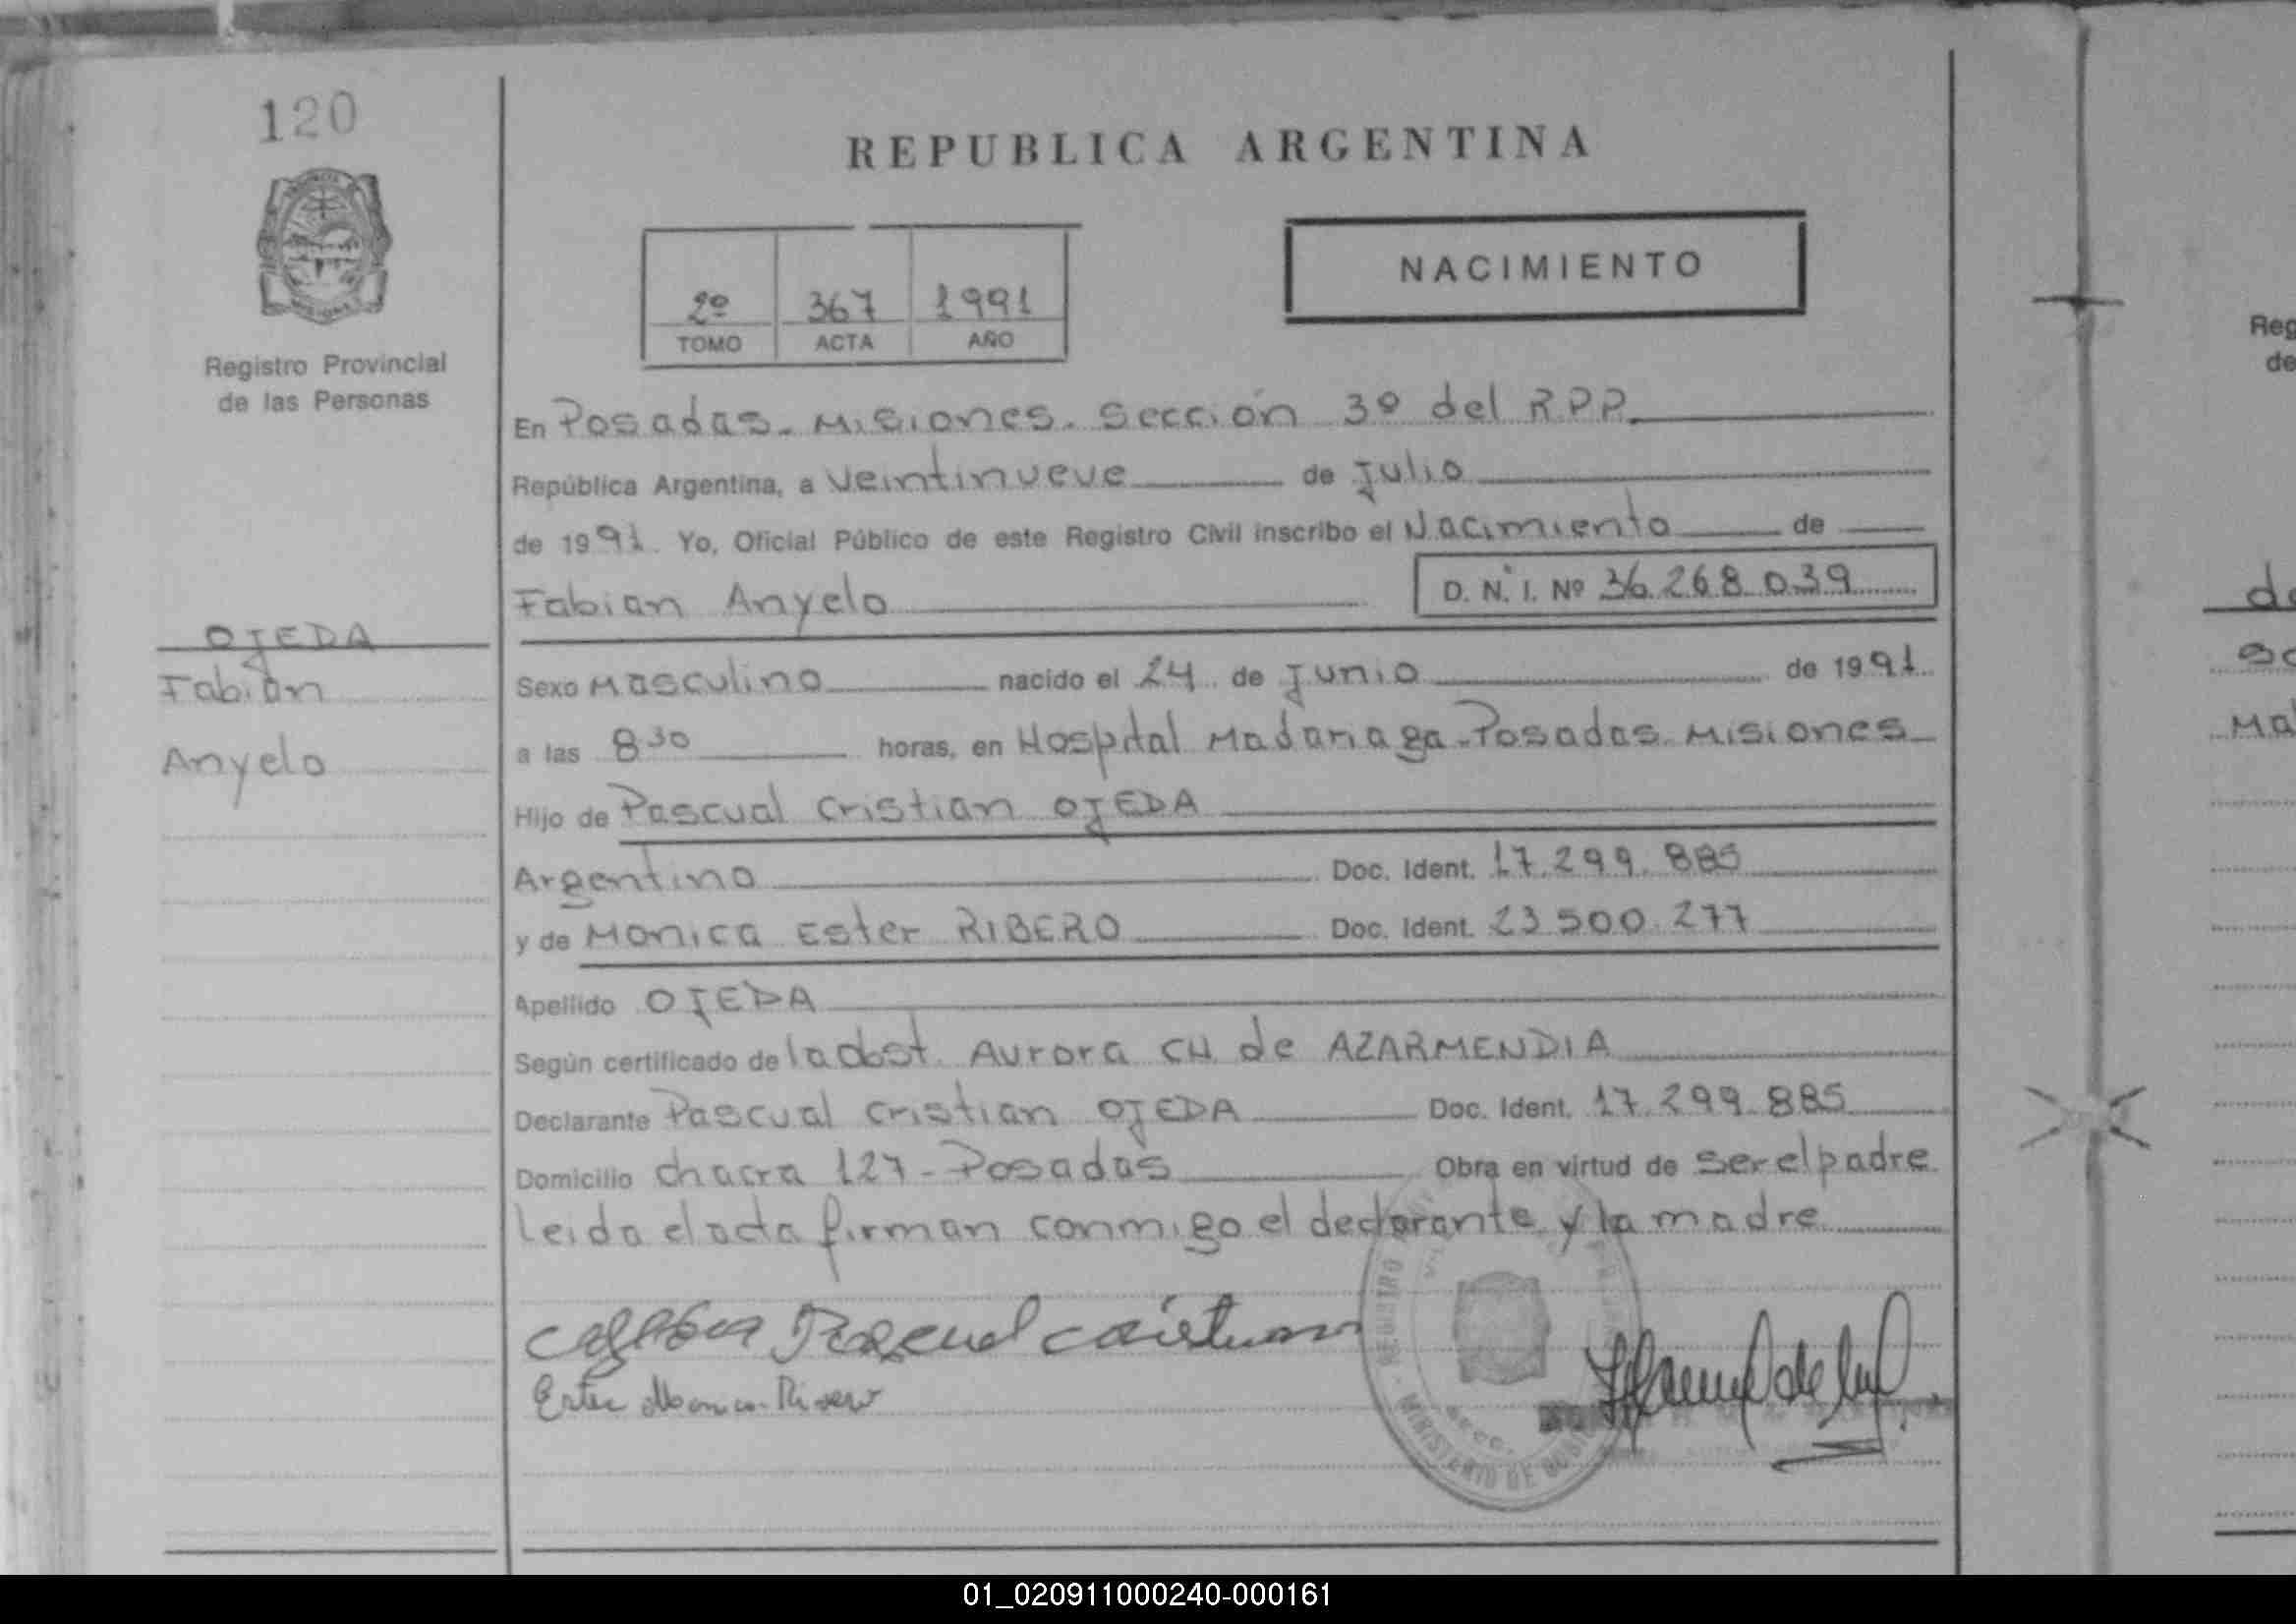 120
REPUBLICA ARGENTINA
NACIMIENTO
2º 367 1991
TOMO ACTA AÑO
Registro Provincial
de las Personas
En Posadas - Misiones. Sección 3º del R.P.P.
República Argentina, a veintinueve de Julio
de 1991. Yo, Oficial Público de este Registro Civil inscribo el Nacimiento de
Fabian Anyelo D. N. I. Nº 36.268.039
OJEDA
Fabian
Anyelo
Sexo Masculino nacido el 24 de Junio de 1991
a las 8:30 horas, en Hospital Madariaga - Posadas Misiones
Hijo de Pascual Cristian OJEDA
Argentino Doc. Ident. 17.299.885
y de Monica Ester RIBERO Doc. Ident. 23.500.277
Apellido OJEDA
Según certificado de la obst. Aurora CH de AZARMENDIA
Declarante Pascual Cristian OJEDA Doc. Ident. 17.299.885
Domicilio chacra 127 - Posadas Obra en virtud de ser el padre
Leida el acta firman conmigo el declarante y la madre
Pascual Cristian
Ester Monica Rivero
REGISTRO
MINISTERIO DE
Reg
de
de
Ma
01_020911000240-000161